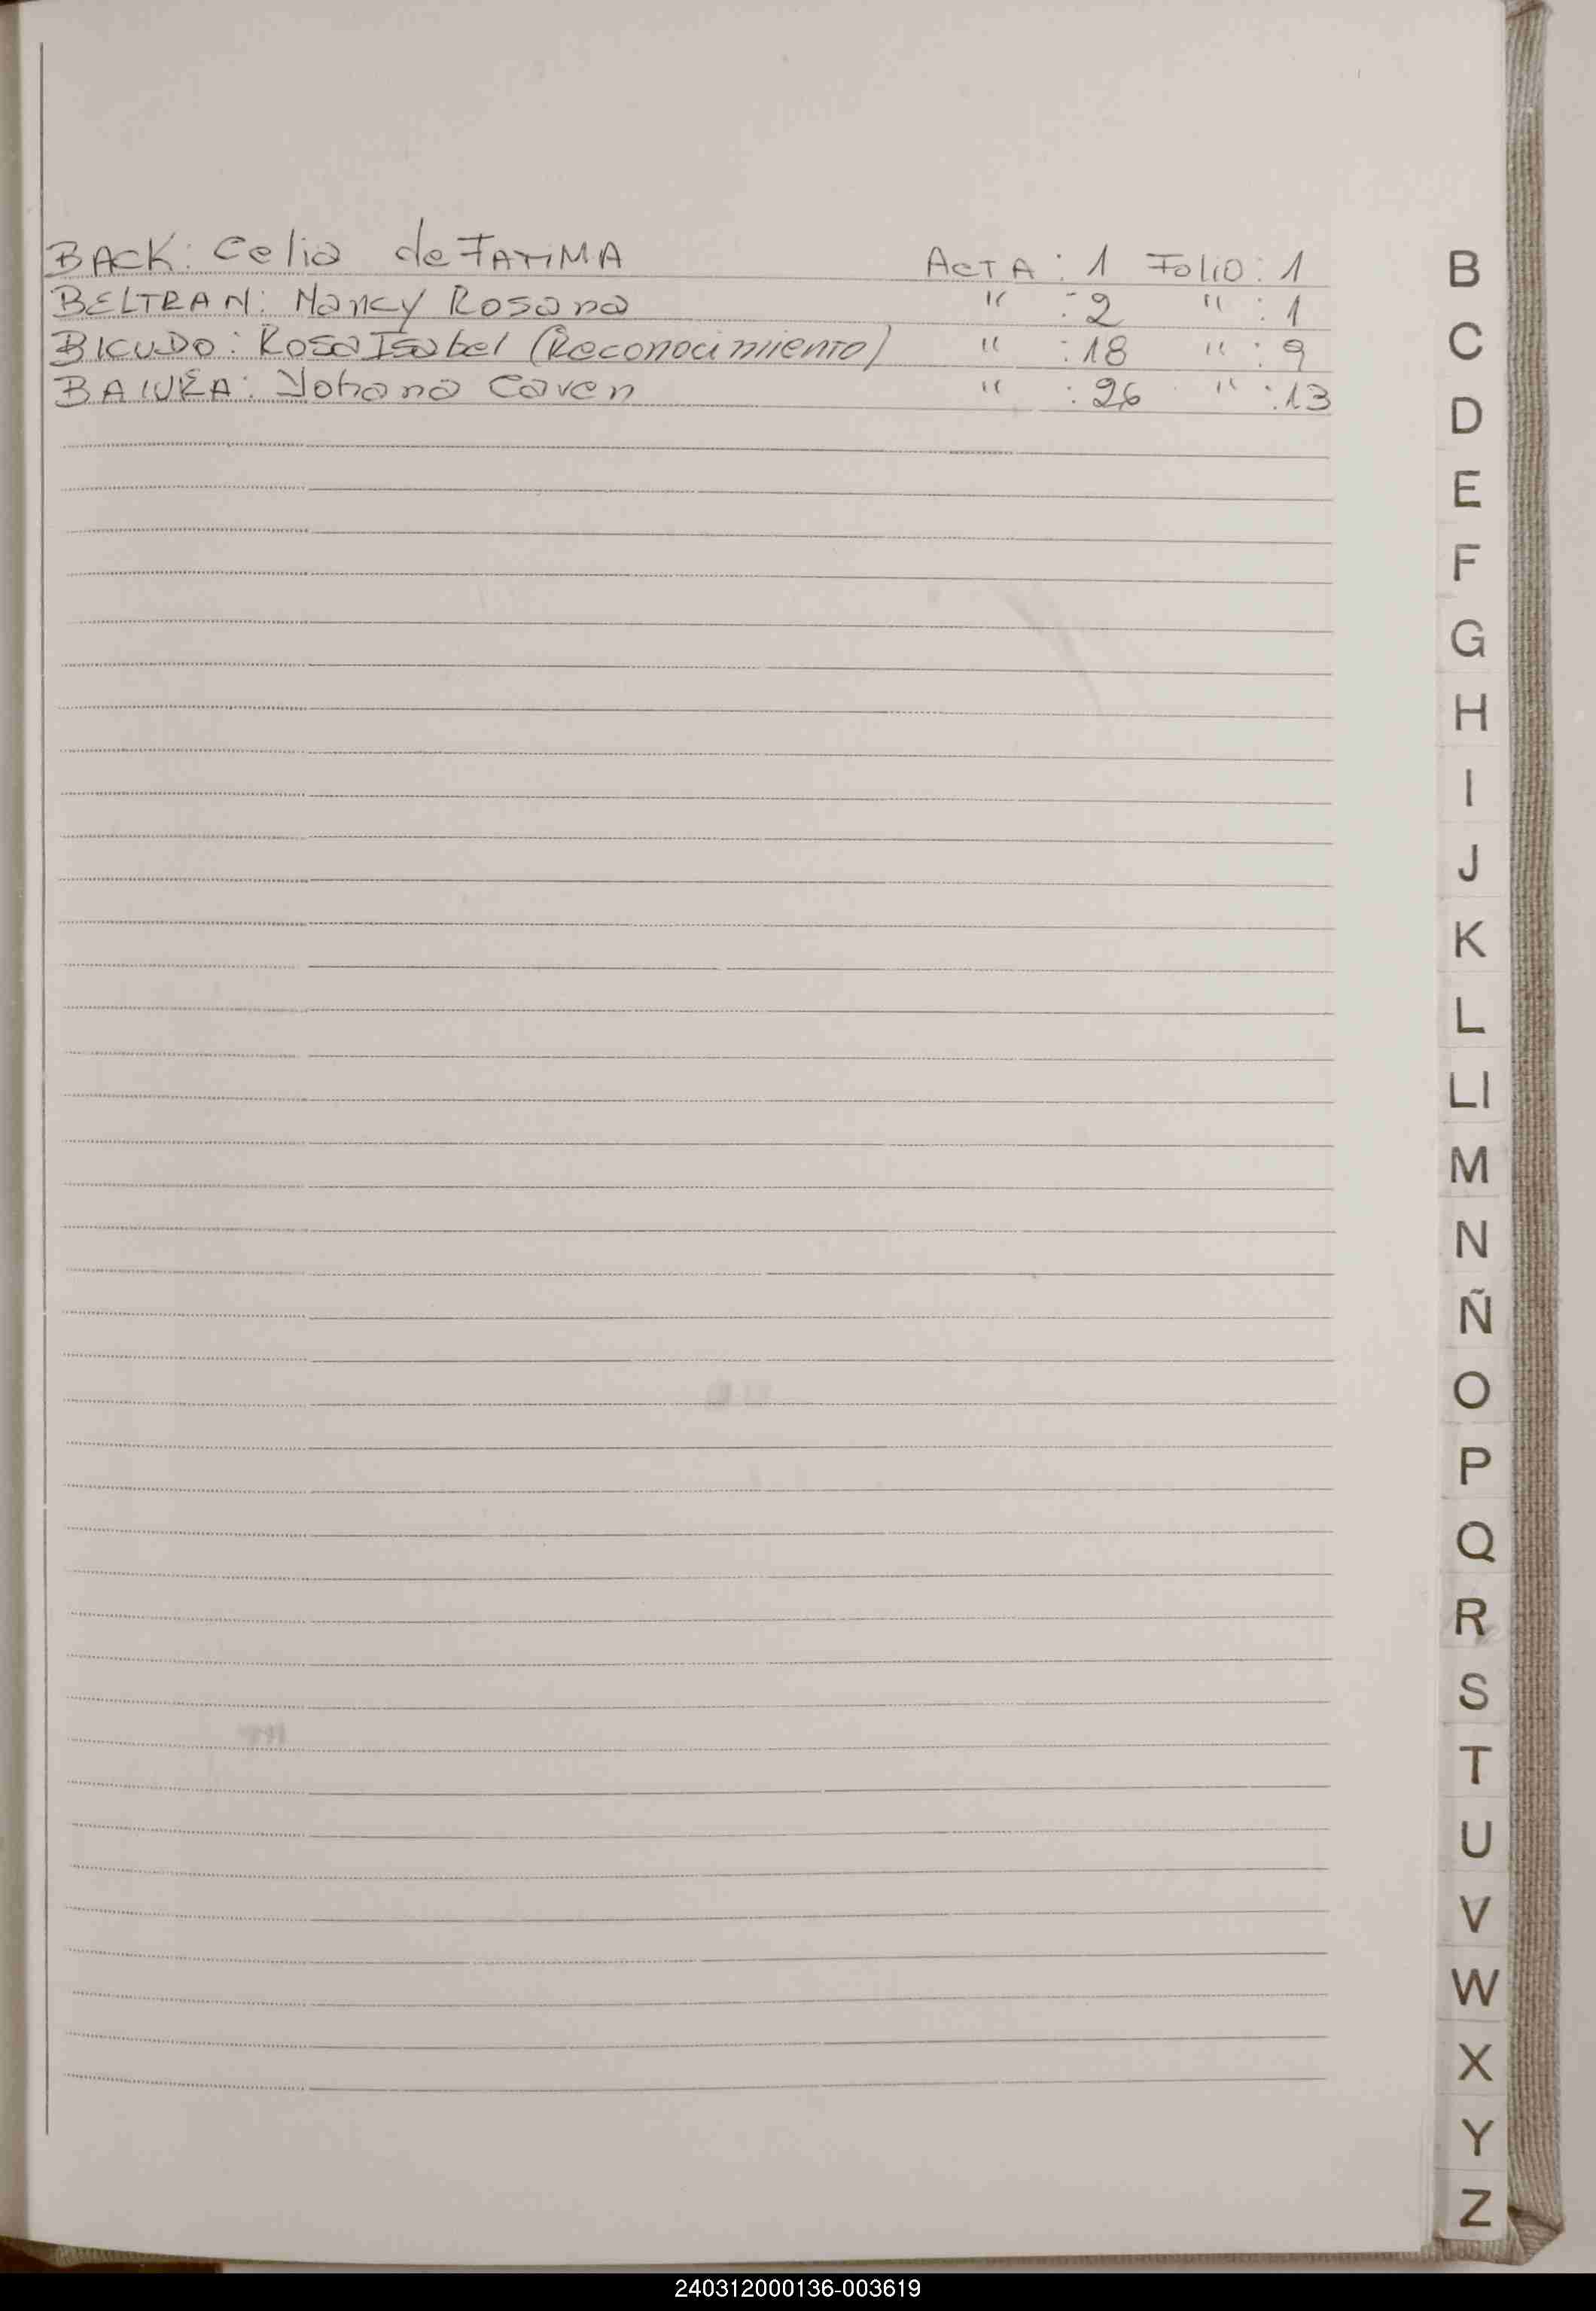 BACK: Celia de FATIMA ACTA: 1 Folio: 1
BELTRAN: Nancy Rosana " : 2 " : 1
BICUDO: Rosa Isabel (Reconocimiento) " : 18 " : 9
Yohana " : 26 " : 13
B
C
D
E
F
G
H
I
J
K
L
Ll
M
N
Ñ
O
P
Q
R
S
T
U
V
W
X
Y
Z
240312000136-003619